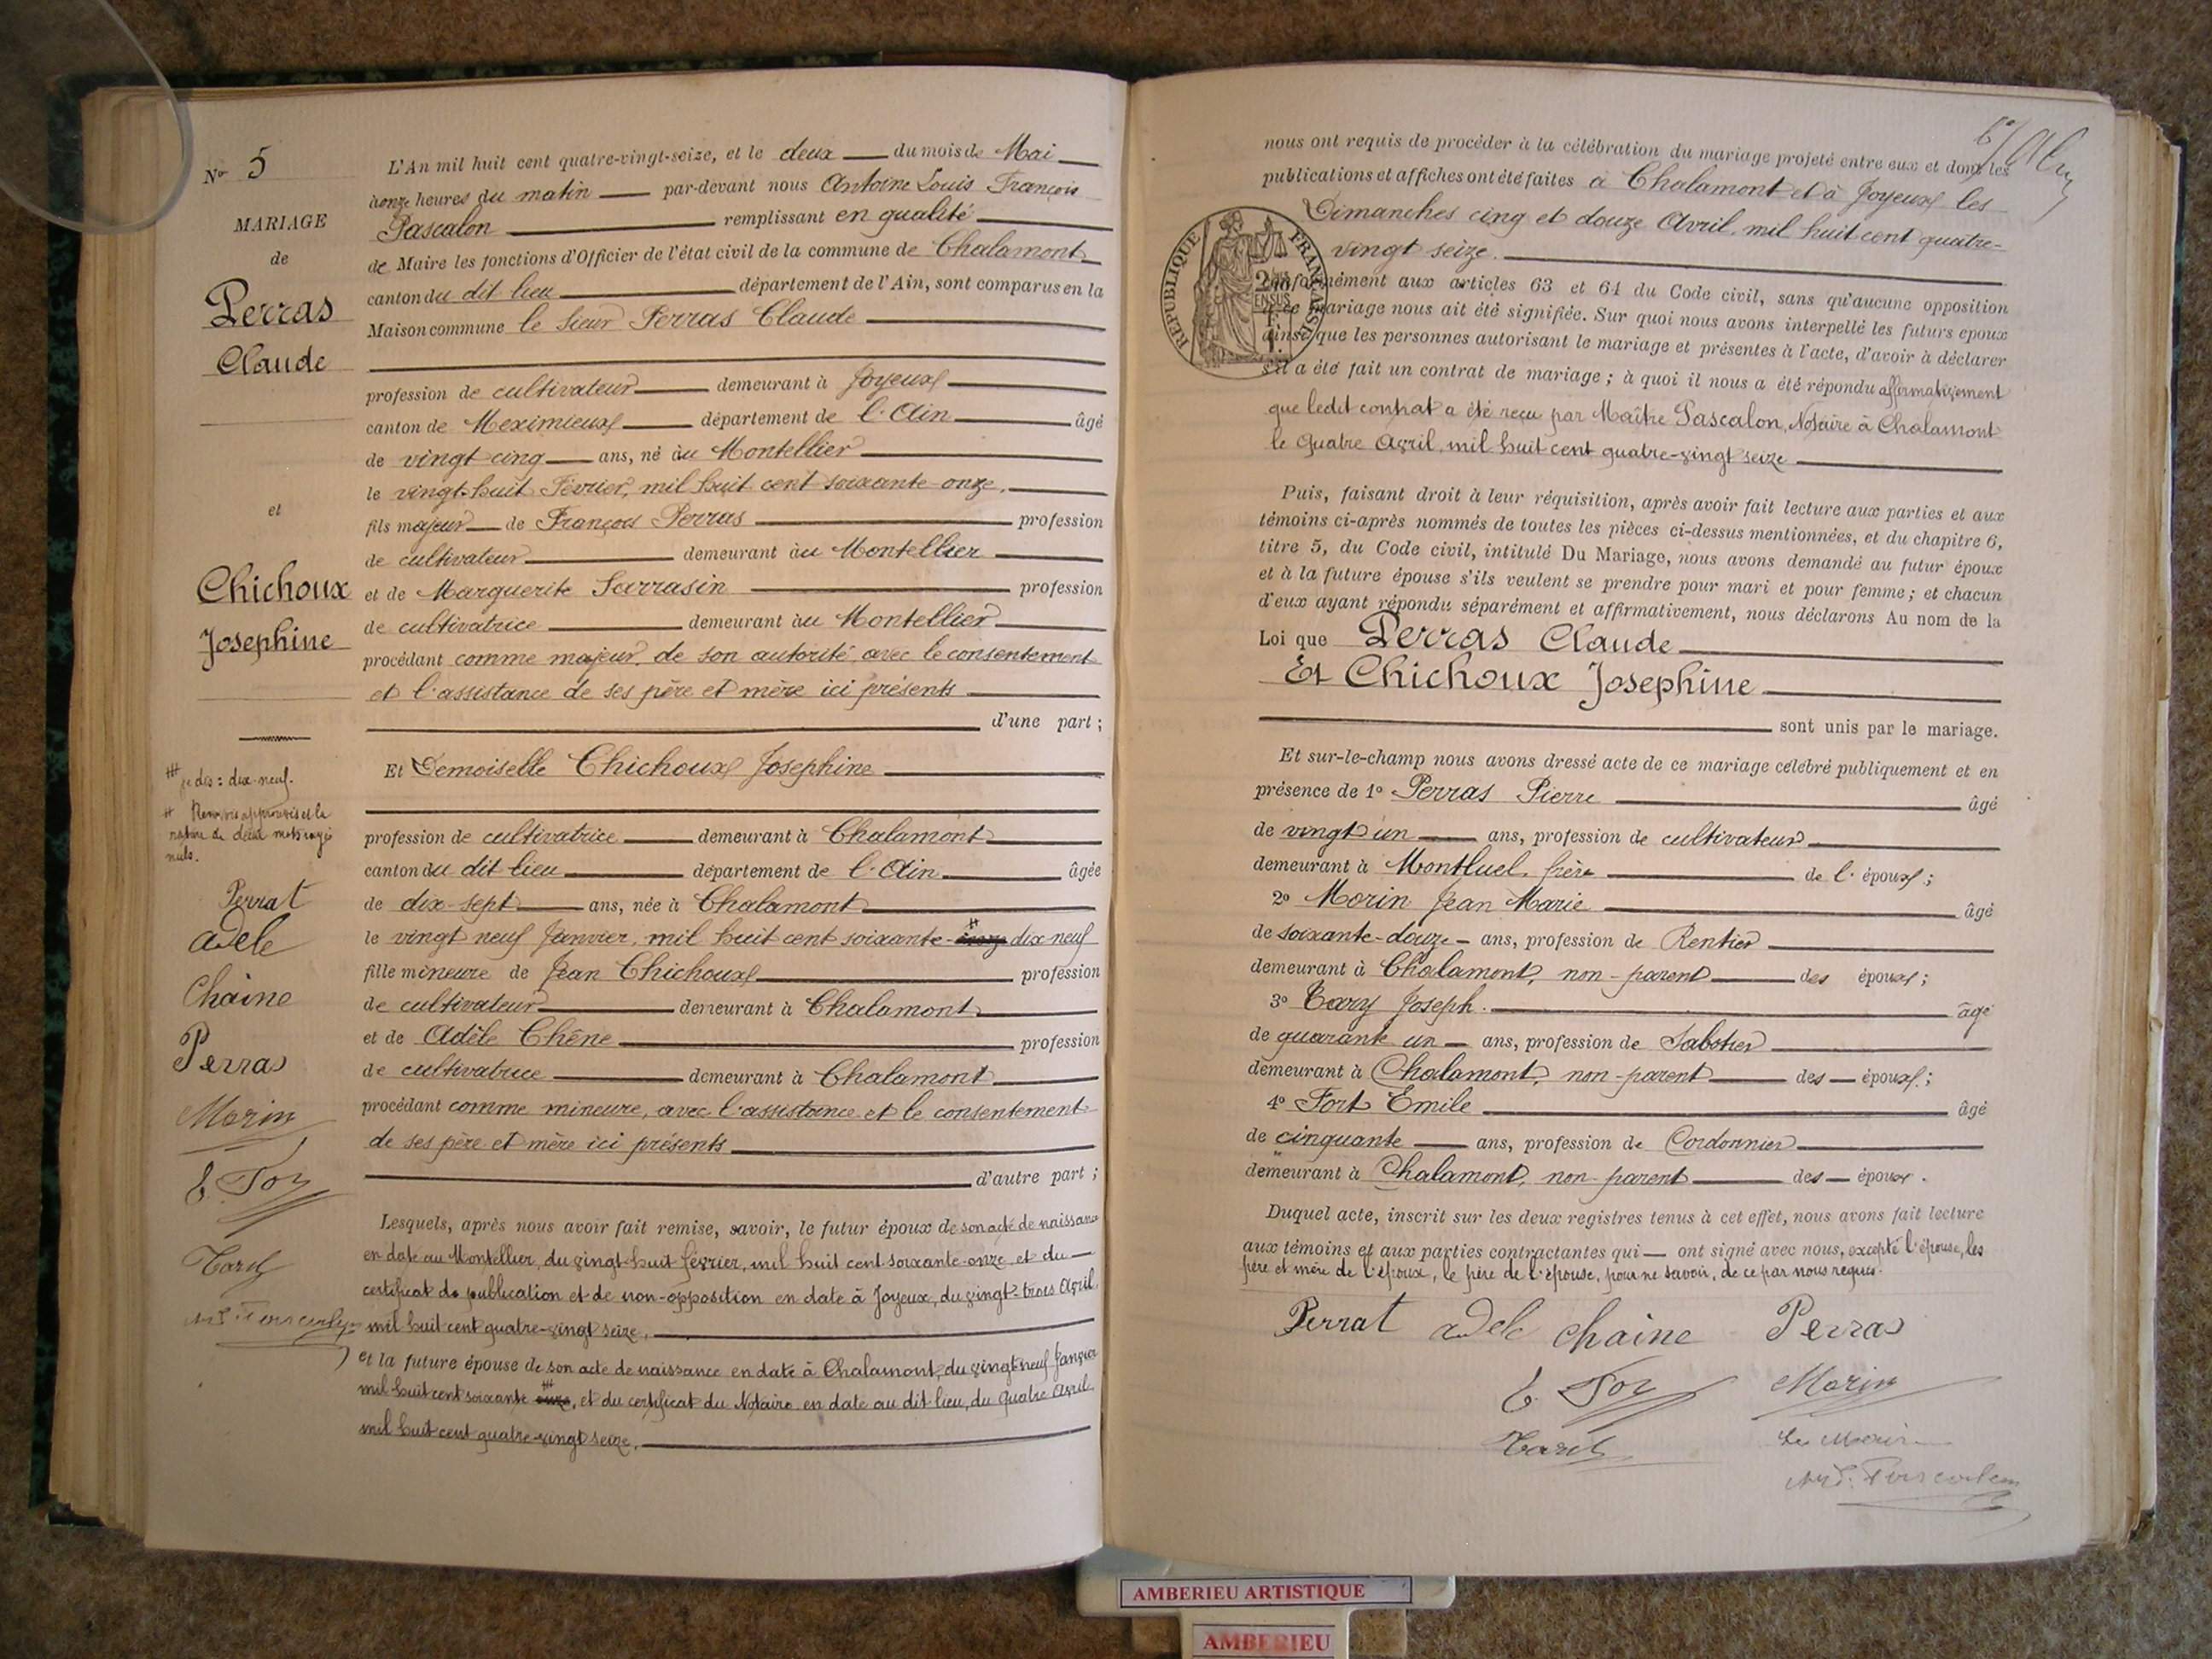 No 5
MARIAGE
de
Perras
Claude
et
Chichoux
Josephine
je dis : dix-neuf.
Renvois approuvés et la
nature de deux mots rayés
nuls.
Perrat
adele
Chaine
Perras
Morin
L'An mil huit cent quatre-vingt-seize, et le deux du mois de Mai
à onze heures du matin par-devant nous Antoine Louis François
Pascalon remplissant en qualité
de Maire les fonctions d'Officier de l'état civil de la commune de Chalamont
canton du dit lieu département de l'Ain, sont comparus en la
Maison commune le Sieur Perras Claude
profession de cultivateur demeurant à Joyeux
canton de Meximieux département de l'Ain âgé
de vingt cinq ans, né au Montellier
le vingt-huit Février, mil huit cent soixante-onze,
fils majeur de François Perras profession
de cultivateur demeurant au Montellier
et de Marguerite Sarrasin profession
de cultivatrice demeurant au Montellier
procédant comme majeur, de son autorité avec le consentement
et l'assistance de ses père et mère ici présents
d'une part ;
Et Demoiselle Chichoux Josephine
profession de cultivatrice demeurant à Chalamont
canton du dit lieu département de l'Ain âgée
de dix-sept ans, née à Chalamont
le vingt neuf Janvier, mil huit cent soixante- dix-neuf
fille mineure de Jean Chichoux profession
de cultivateur demeurant à Chalamont
et de Adèle Chêne profession
de cultivatrice demeurant à Chalamont
procédant comme mineure, avec l'assistance et le consentement
de ses père et mère ici présents
d'autre part ;
Lesquels, après nous avoir fait remise, savoir, le futur époux de son acte de naissance
en date au Montellier, du vingt-huit février, mil huit cent soixante-onze, et du
certificat de publication et de non-opposition en date à Joyeux, du vingt-trois Avril
mil huit cent quatre-vingt seize.
et la future épouse de son acte de naissance en date à Chalamont, du vingt-neuf Janvier
mil huit cent soixante onze, et du certificat du Notaire en date au dit lieu, du Quatre Avril
mil huit cent quatre-vingt seize.
nous ont requis de procéder à la célébration du mariage projeté entre eux et dont les
publications et affiches ont été faites à Chalamont et à Joyeux les
Dimanches cinq et douze Avril, mil huit cent quatre-
vingt seize.
RÉPUBLIQUE FRANÇAISE
Conformément aux articles 63 et 64 du Code civil, sans qu'aucune opposition
à ce mariage nous ait été signifiée. Sur quoi nous avons interpellé les futurs epoux
ainsi que les personnes autorisant le mariage et présentes à l'acte, d'avoir à déclarer
s'il a été fait un contrat de mariage ; à quoi il nous a été répondu affirmativement
que ledit contrat a été reçu par Maître Pascalon, Notaire à Chalamont
le Quatre Avril, mil huit cent quatre-vingt seize
Puis, faisant droit à leur réquisition, après avoir fait lecture aux parties et aux
témoins ci-après nommés de toutes les pièces ci-dessus mentionnées, et du chapitre 6,
titre 5, du Code civil, intitulé Du Mariage, nous avons demandé au futur époux
et à la future épouse s'ils veulent se prendre pour mari et pour femme ; et chacun
d'eux ayant répondu séparément et affirmativement, nous déclarons Au nom de la
Loi que Perras Claude
Et Chichoux Josephine
sont unis par le mariage.
Et sur-le-champ nous avons dressé acte de ce mariage célébré publiquement et en
présence de 1o Perras Pierre âgé
de vingt un ans, profession de cultivateur
demeurant à Montluel, frère de l'époux ;
2o Morin Jean Marie âgé
de soixante-douze ans, profession de Rentier
demeurant à Chalamont, non-parent des époux ;
3o Tary Joseph. âgé
de quarante un ans, profession de Sabotier
demeurant à Chalamont, non-parent des époux ;
4o Fort Emile âgé
de cinquante ans, profession de Cordonnier
demeurant à Chalamont, non-parent des époux.
Duquel acte, inscrit sur les deux registres tenus à cet effet, nous avons fait lecture
aux témoins et aux parties contractantes qui ont signé avec nous, excepté l'épouse, les
père et mère de l'époux, le père de l'épouse, pour ne savoir, de ce par nous requis.
Perrat adele chaine Perras
Morin
Le Maire
AMBERIEU ARTISTIQUE
AMBERIEU